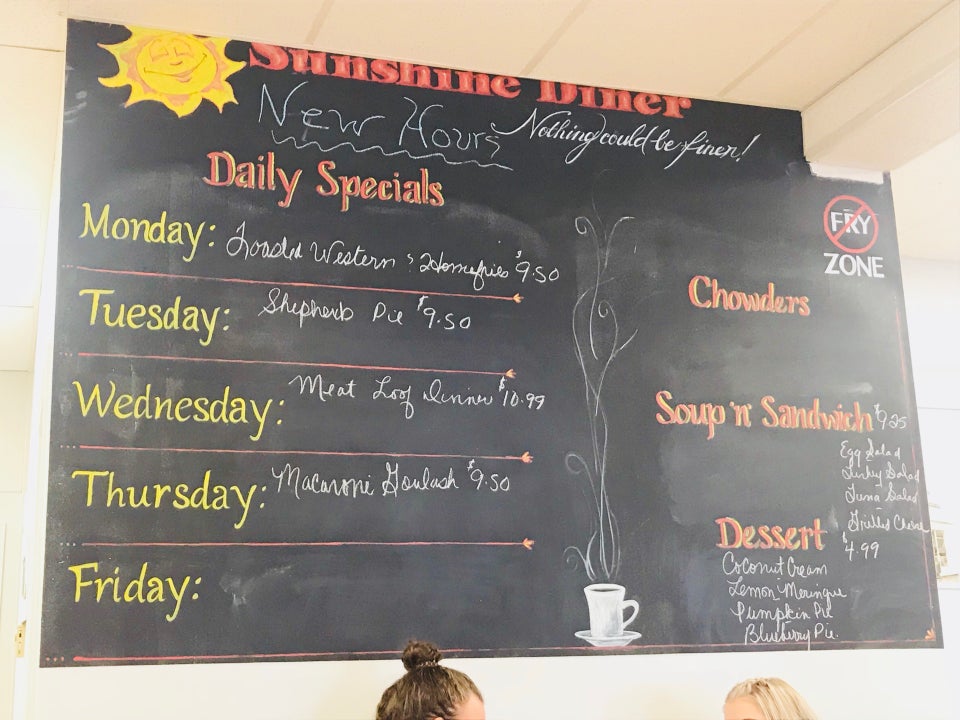 Sunshine Diner
New Hours
Nothing could be finer!
Daily Specials
Monday: Toasted Western & Homefries $9.50
Tuesday: Shepherd Pie $9.50
Wednesday: Meat Loaf Dinner $10.99
Thursday: Macaroni Goulash $9.50
Friday:
FRY
ZONE
Chowders
Soup 'n' Sandwich $9.25
Egg Salad
Turkey Salad
Tuna Salad
Grilled Cheese
Dessert $4.99
Coconut Cream
Lemon Meringue
Pumpkin Pie
Blueberry Pie.